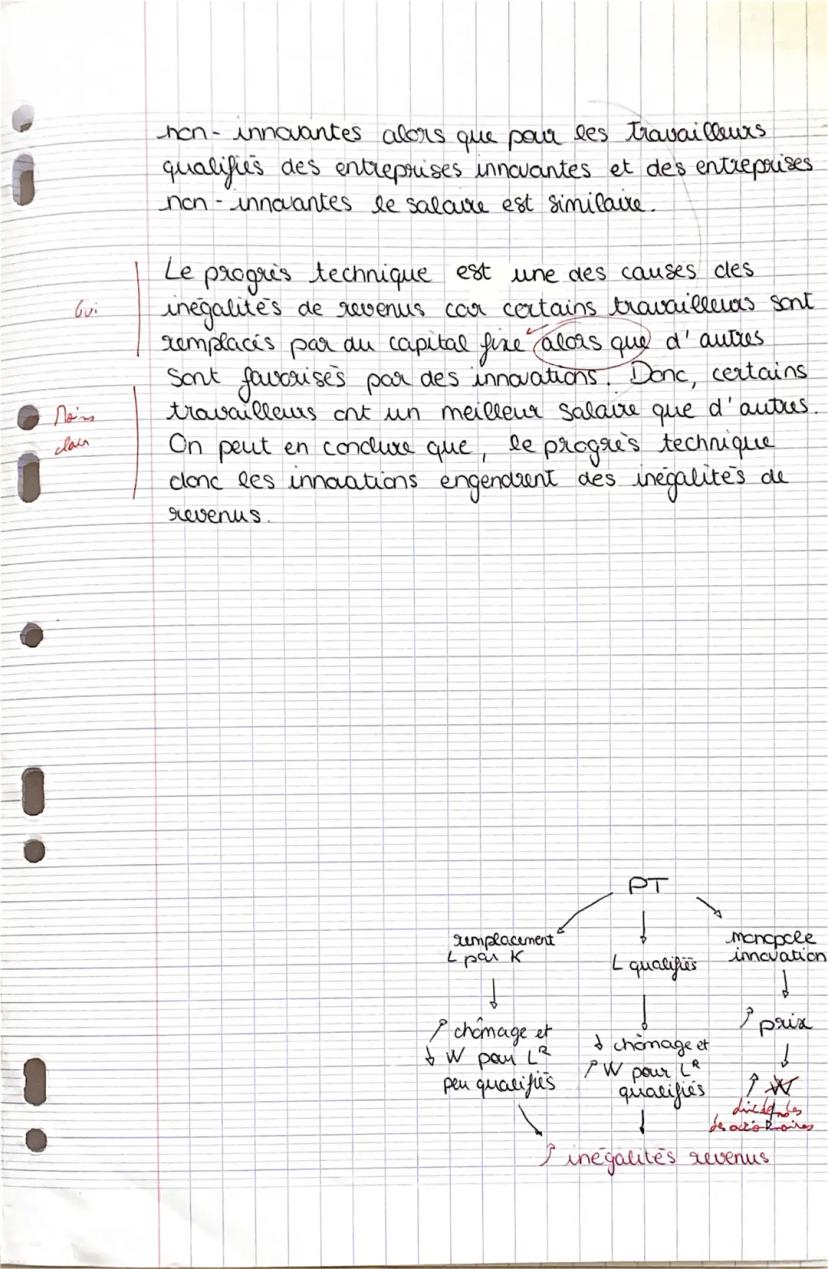 non-innovantes alors que pour les travailleurs
qualifiés des entreprises innovantes et des entreprises
non-innovantes le salaire est similaire.
Le progrès technique est une des causes des
Oui
inégalités de revenus car certains travailleurs sont
remplacés par du capital fixe alors que d'autres
sont favorisés par des innovations. Donc, certains
Moins
travailleurs ont un meilleur salaire que d'autres.
clair
On peut en conclure que, le progrès technique
donc les innovations engendrent des inégalités de
revenus.
PT
remplacement
L par K
L qualifiés
monopole
innovation
↗ chômage et
↓ W pour LR
peu qualifiés
↓ chômage et
↗ W pour LR
qualifiés
↗ prix
↗ W
↗ inégalités revenus